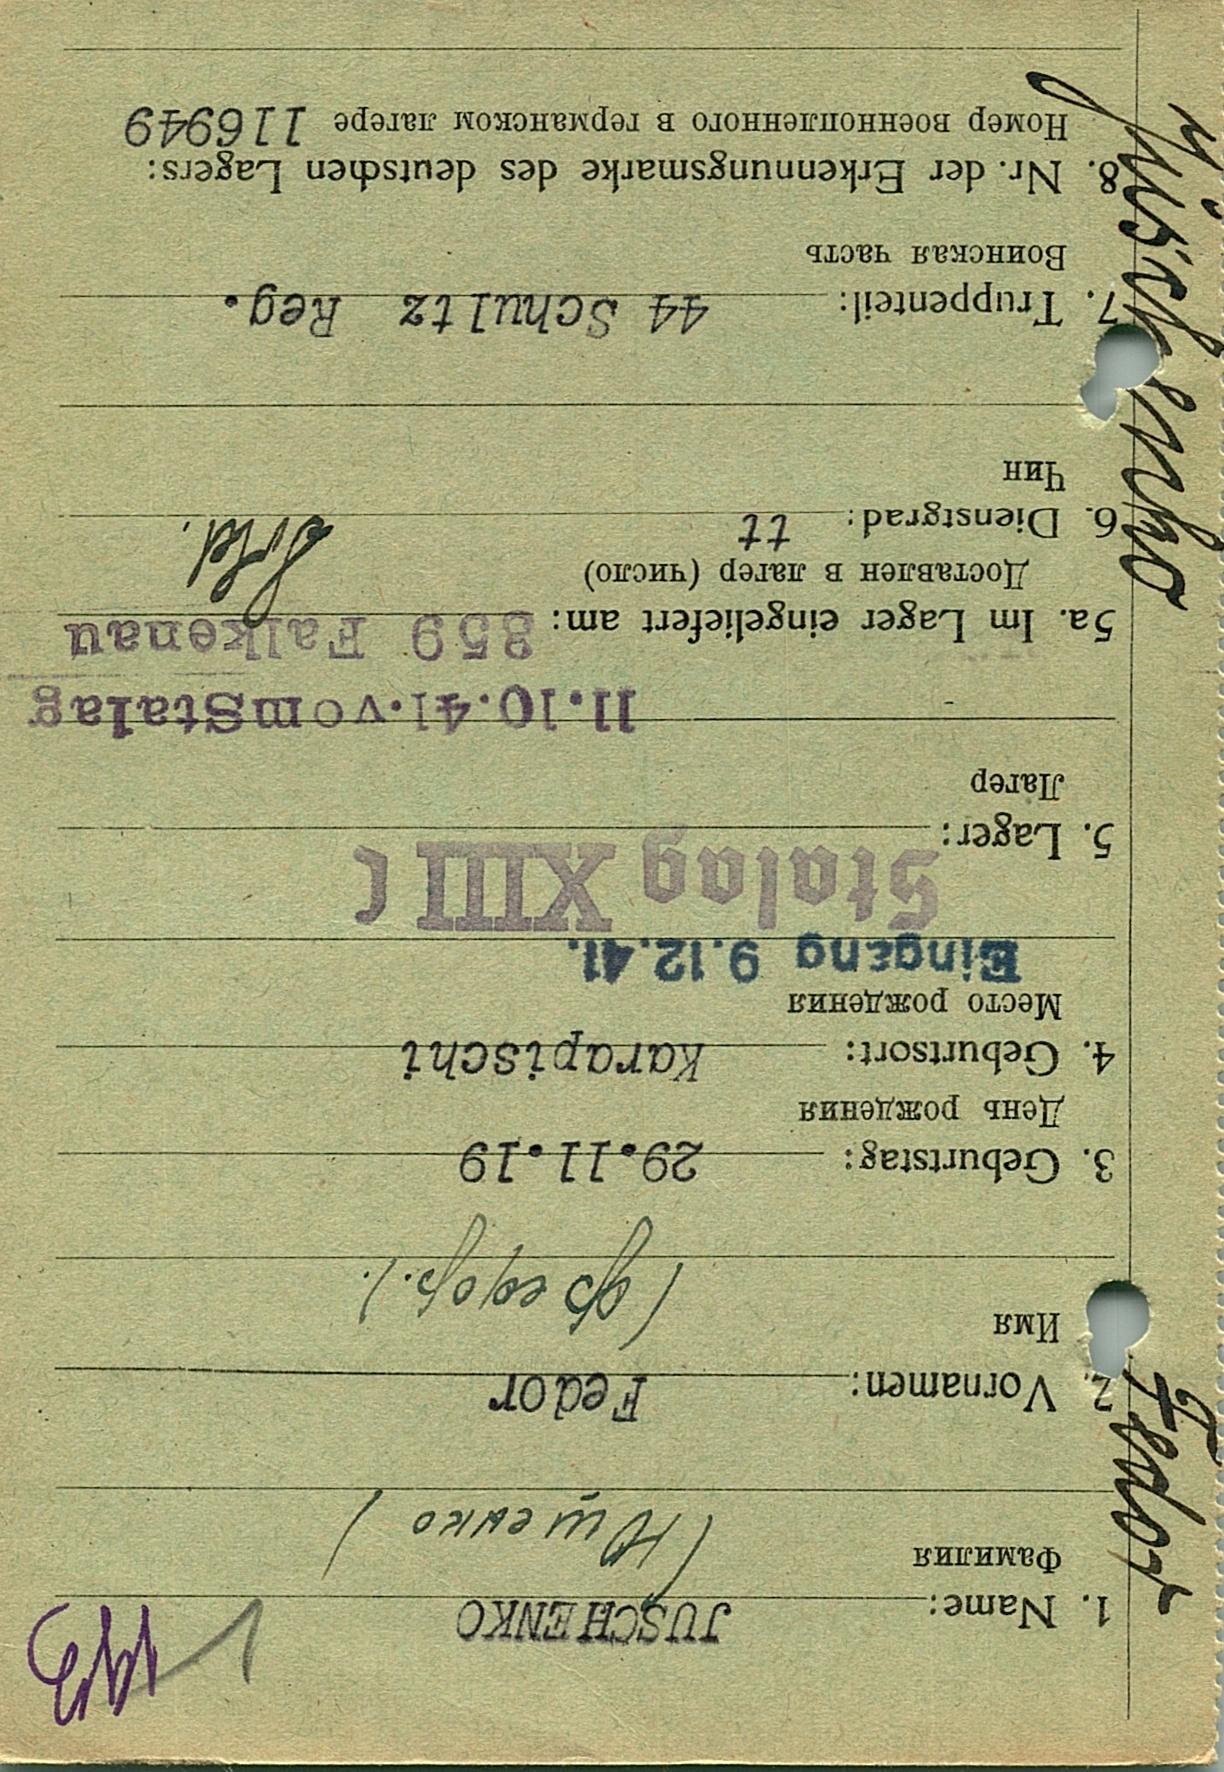 1. Name: JUSCHENKO
Фамилия (Ющенко)
2. Vornamen: Fedor
Имя (Федор.).
3. Geburtstag: 29.11.19
День рождения
4. Geburtsort: Karapischi
Место рождения
Eingang 9.12.41.
Stalag XIII C
5. Lager:
Лагерь
11.10.41.vom Stalag
359 Falkenau
5a. Im Lager eingeliefert am:
Доставлен в лагерь (число)
6. Dienstgrad: tt Sold.
Чин
7. Truppenteil: 44 Schultz Reg.
Воинская часть
8. Nr. der Erkennungsmarke des deutschen Lagers:
Номер военнопленного в германском лагере 116949
Juschenko
Fedor